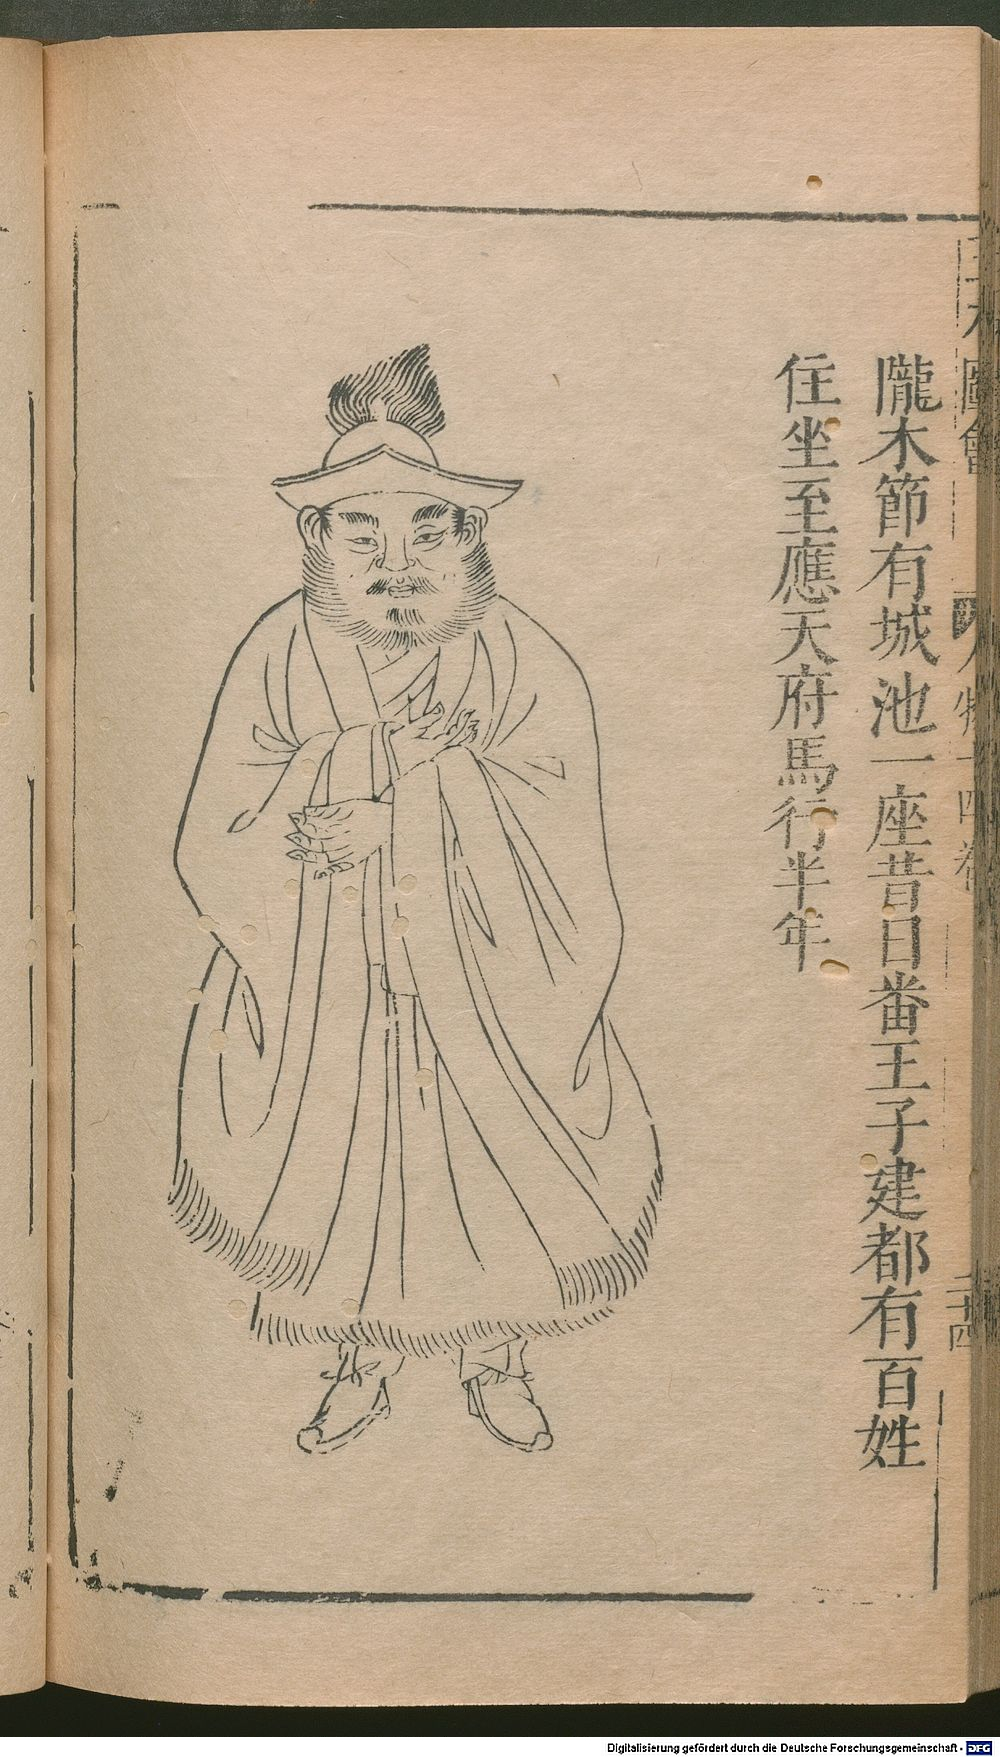 隴木節有城池一座昔日番王子建都有百姓
住坐至應天府馬行半年
三才圖會
人物十四卷
二十四
Digitalisierung gefördert durch die Deutsche Forschungsgemeinschaft - DFG